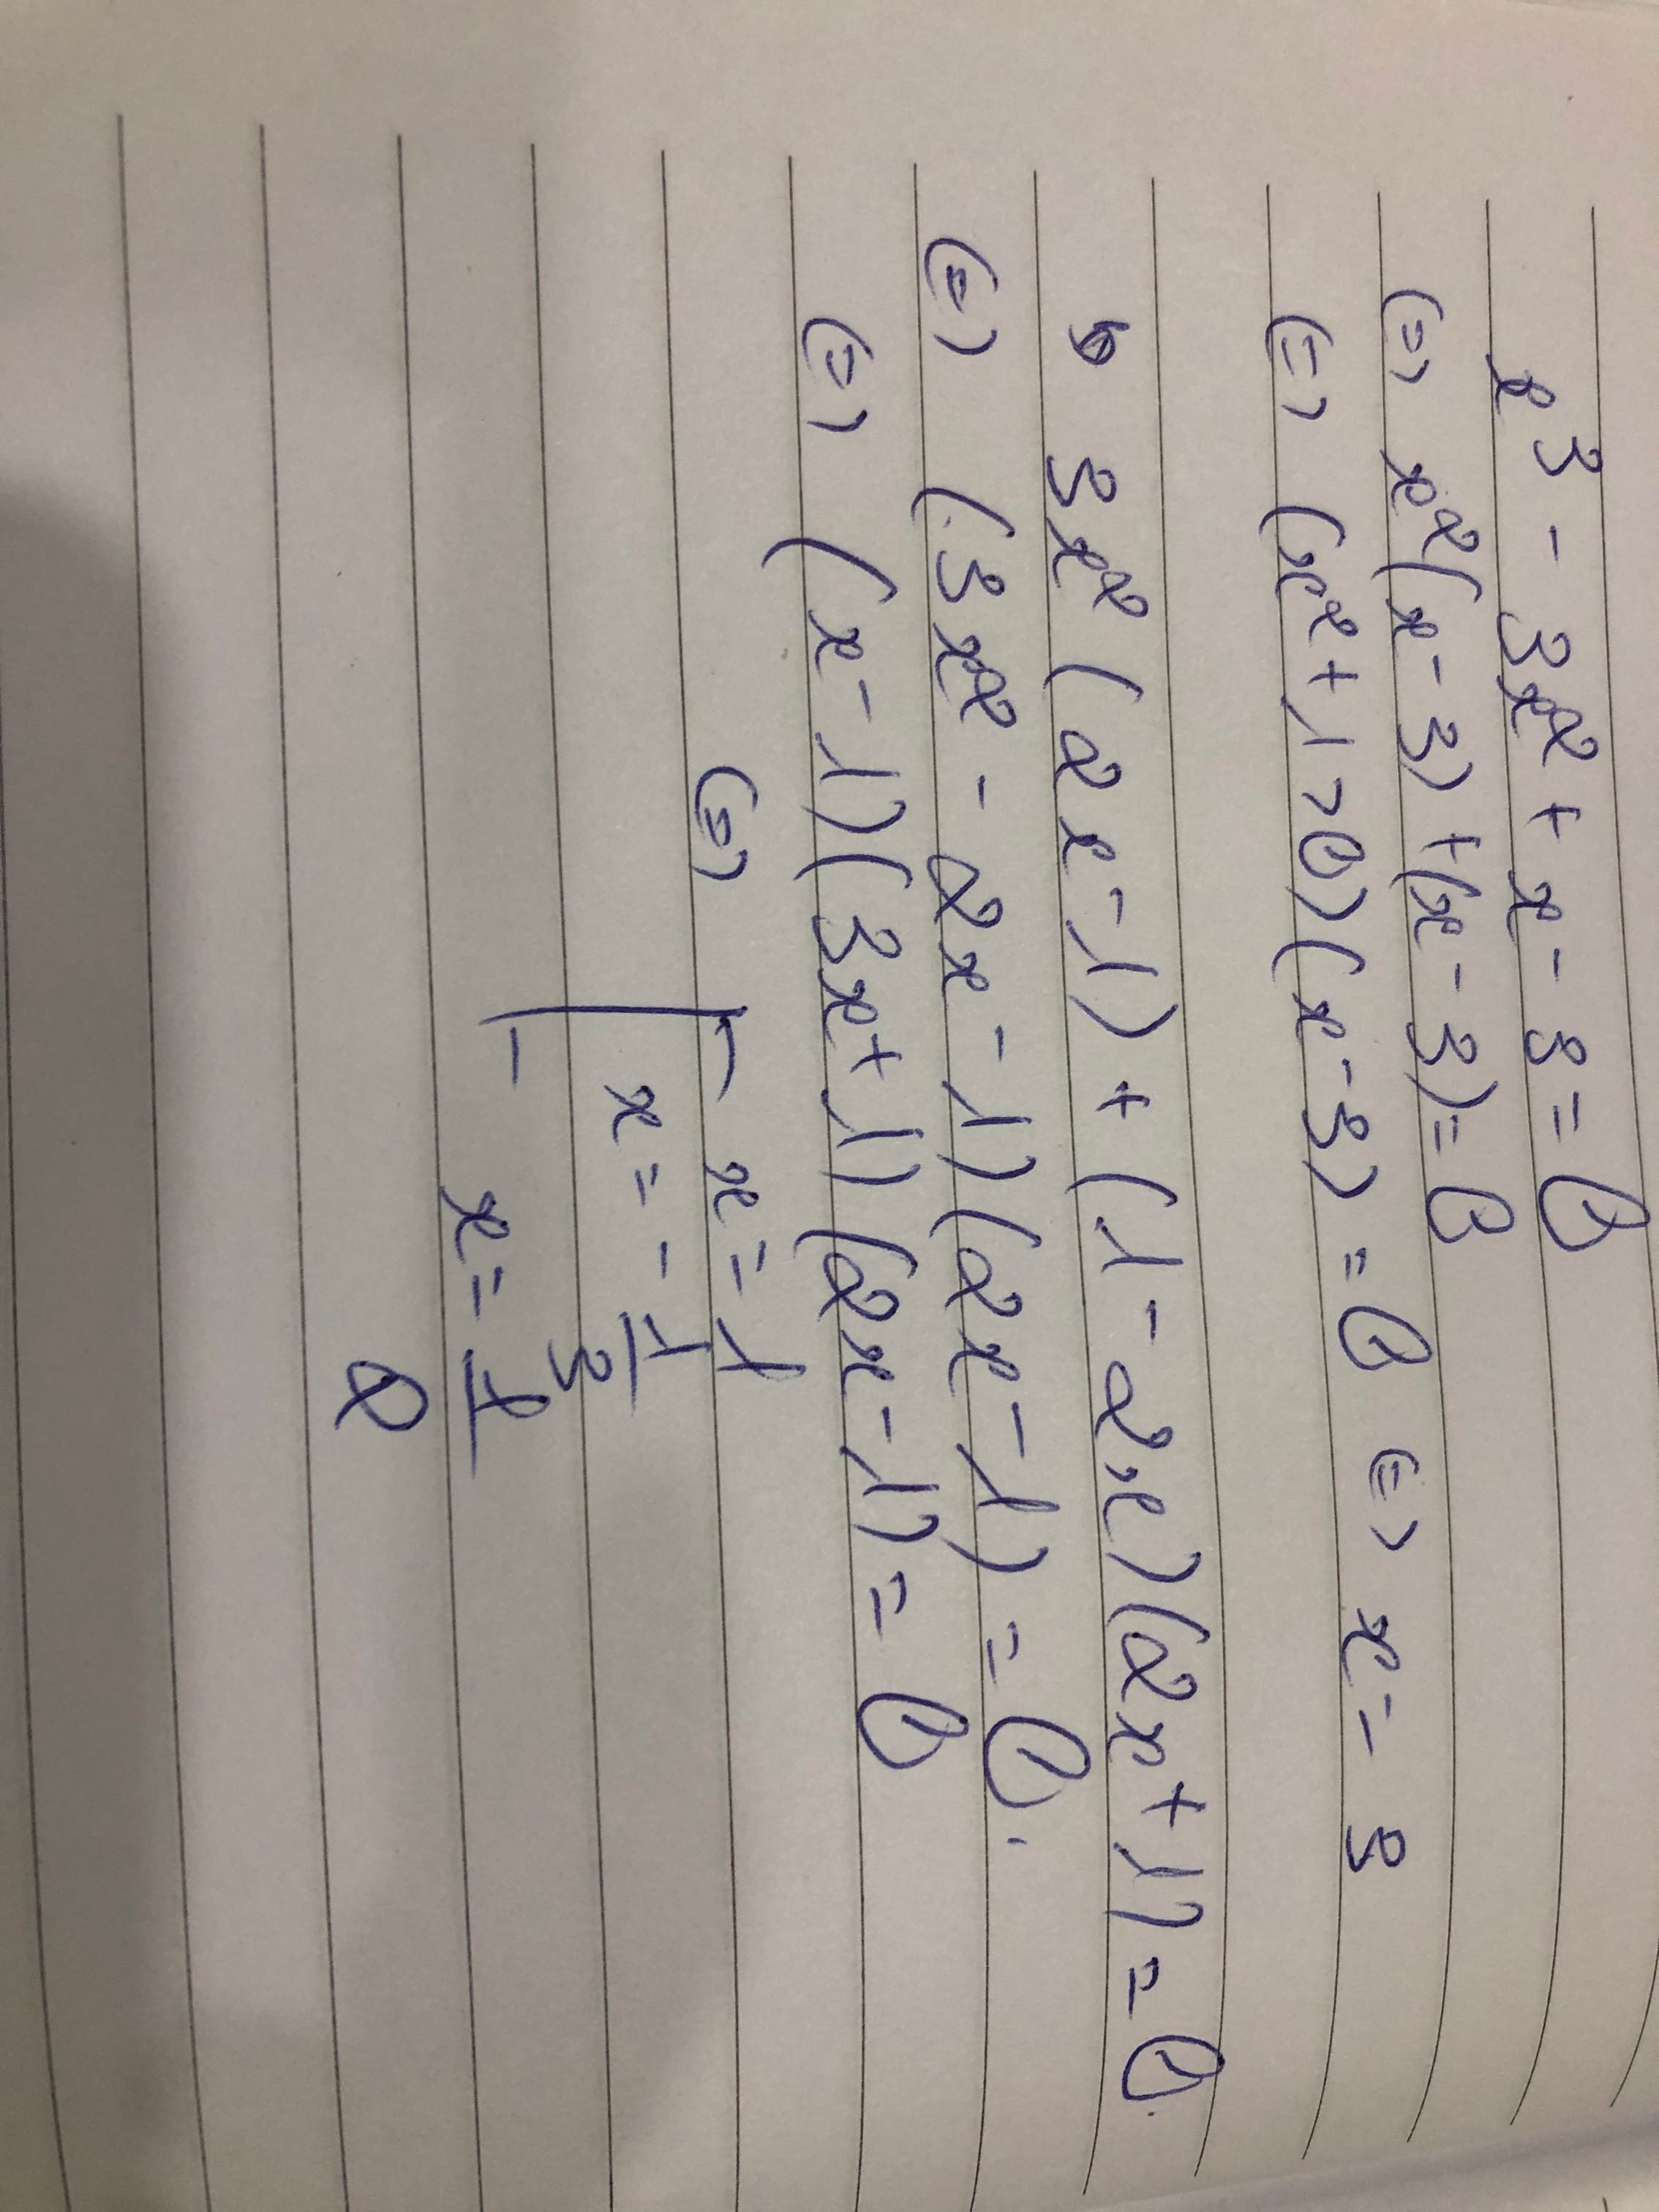 x³ - 3x² + x - 3 = 0
(=) x²(x - 3) + (x - 3) = 0
(=) (x² + 1 > 0)(x - 3) = 0 (=) x = 3
b 3x² (2x - 1) + (1 - 2x)(2x + 1) = 0.
(=) (3x² - 2x - 1)(2x - 1) = 0.
(=) (x - 1)(3x + 1)(2x - 1) = 0
(=) [ x = 1
x = - 1/3
x = 1/2